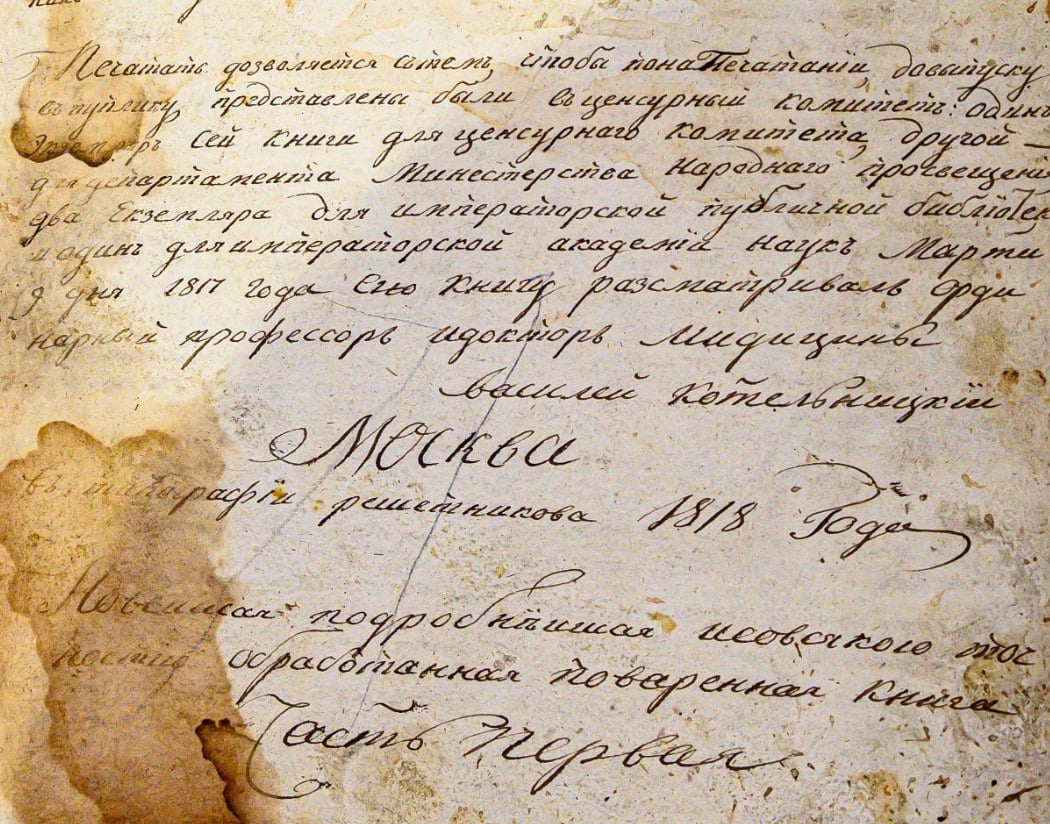 Печатать дозволяется сътемъ, чтобы понапечатанiи, довыпуску
въпублику, представлены были въценсурный комитетъ: одинъ
Экземпляръ сей книги для ценсурнаго комитета, другой —
для департамента Министерства народнаго просвещенiя
два Екземпляра для императорской публичной библiотек
и одинъ для императорской академiи наукъ Марта
9 дня 1817 года Сiю книгу разсматривалъ орди
нарный профессоръ идокторъ Мидицины
василей котельницкiй
Москва
въ типографiи решетникова 1818 Года
Новейшая подробнѣишая исовсякого точ
ностiю обработанная поваренная книга
Часть Первая